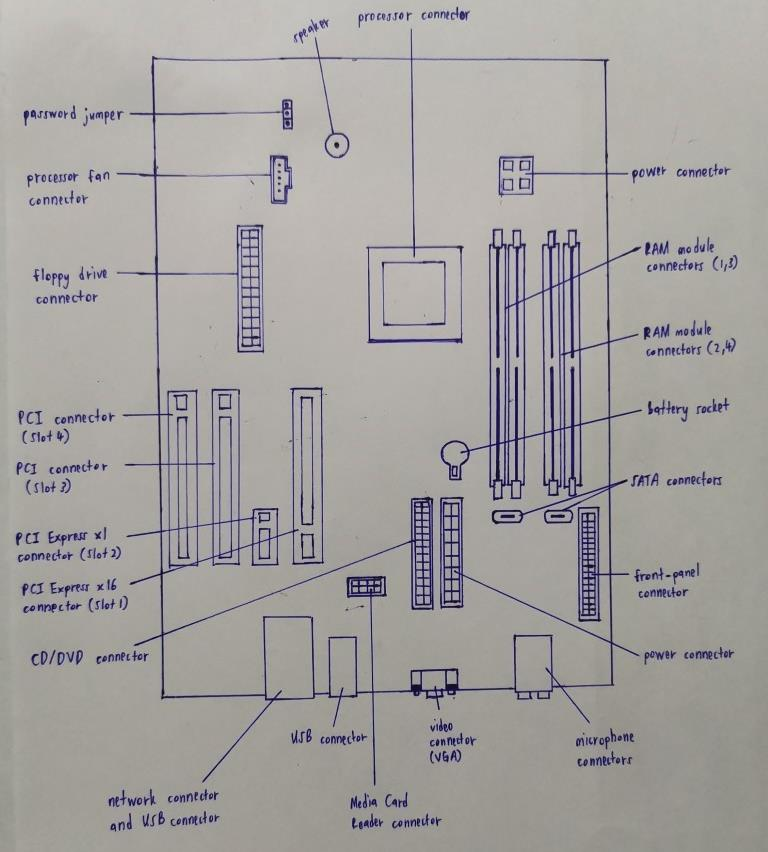 processor connector
speaker
password jumper
processor fan
connector
power connector
floppy drive
connector
RAM module
connectors (1,3)
RAM module
connectors (2,4)
Battery socket
PCI connector
(slot 4)
PCI connector
(slot 3)
SATA connectors
PCI Express x1
connector (slot 2)
PCI Express x16
connector (slot 1)
front-panel
connector
CD/DVD connector
power connector
USB connector
video
connector
(VGA)
microphone
connectors
network connector
and USB connector
Media Card
Reader connector